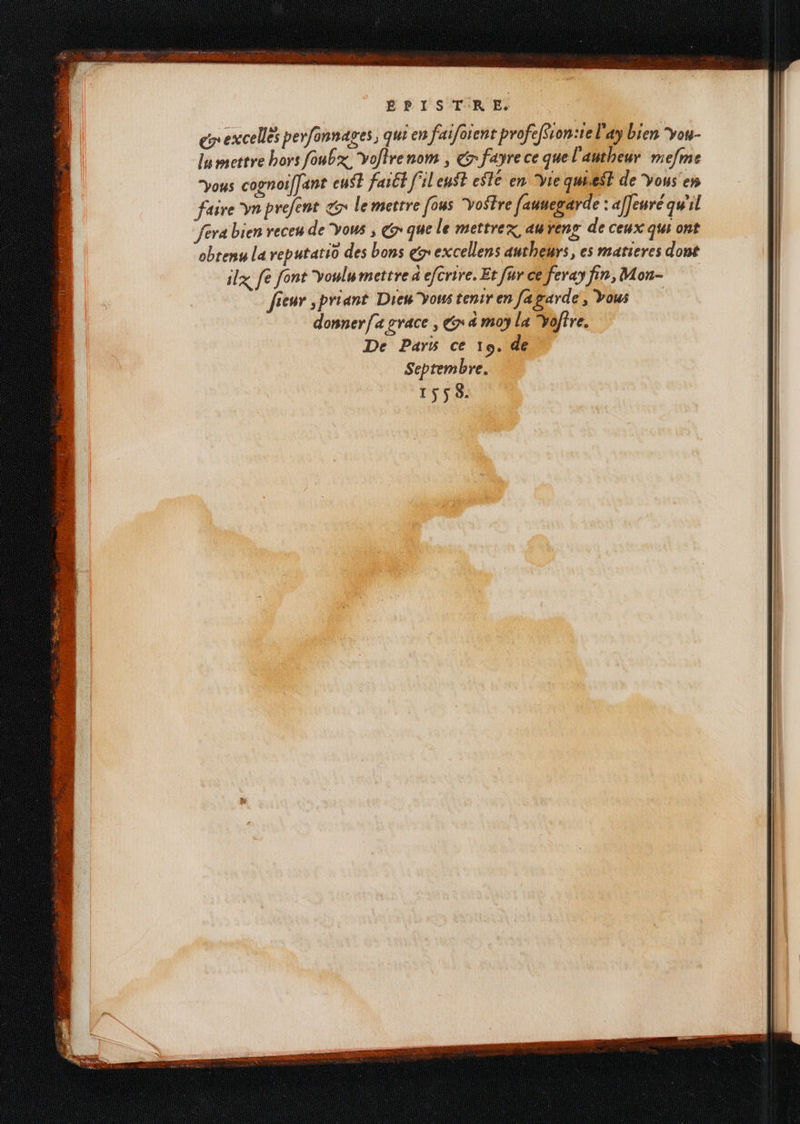 EPISTRE.
& excellẽs perſonnages, qui en faiſoient profeſsion: ie l'ay bien vou-
lu mettre hors ſoubz voſtre nom, & fayre ce que l'autheur meſme
vous cognoiſſant euſt faict ſ'il euſt eſté en vie qui eſt de vous en
faire vn preſent & le mettre ſous voſtre ſauuegarde : aſſeuré qu'il
ſera bien receu de vous, & que le mettrez au reng de ceux qui ont
obtenu la reputatiõ des bons & excellens autheurs, es matieres dont
ilz ſe ſont voulu mettre à eſcrire. Et ſur ce feray fin, Mon-
ſieur, priant Dieu vous tenir en ſa garde, vous
donner ſa grace, & à moy la voſtre.
De Paris ce 19. de
Septembre.
1558.